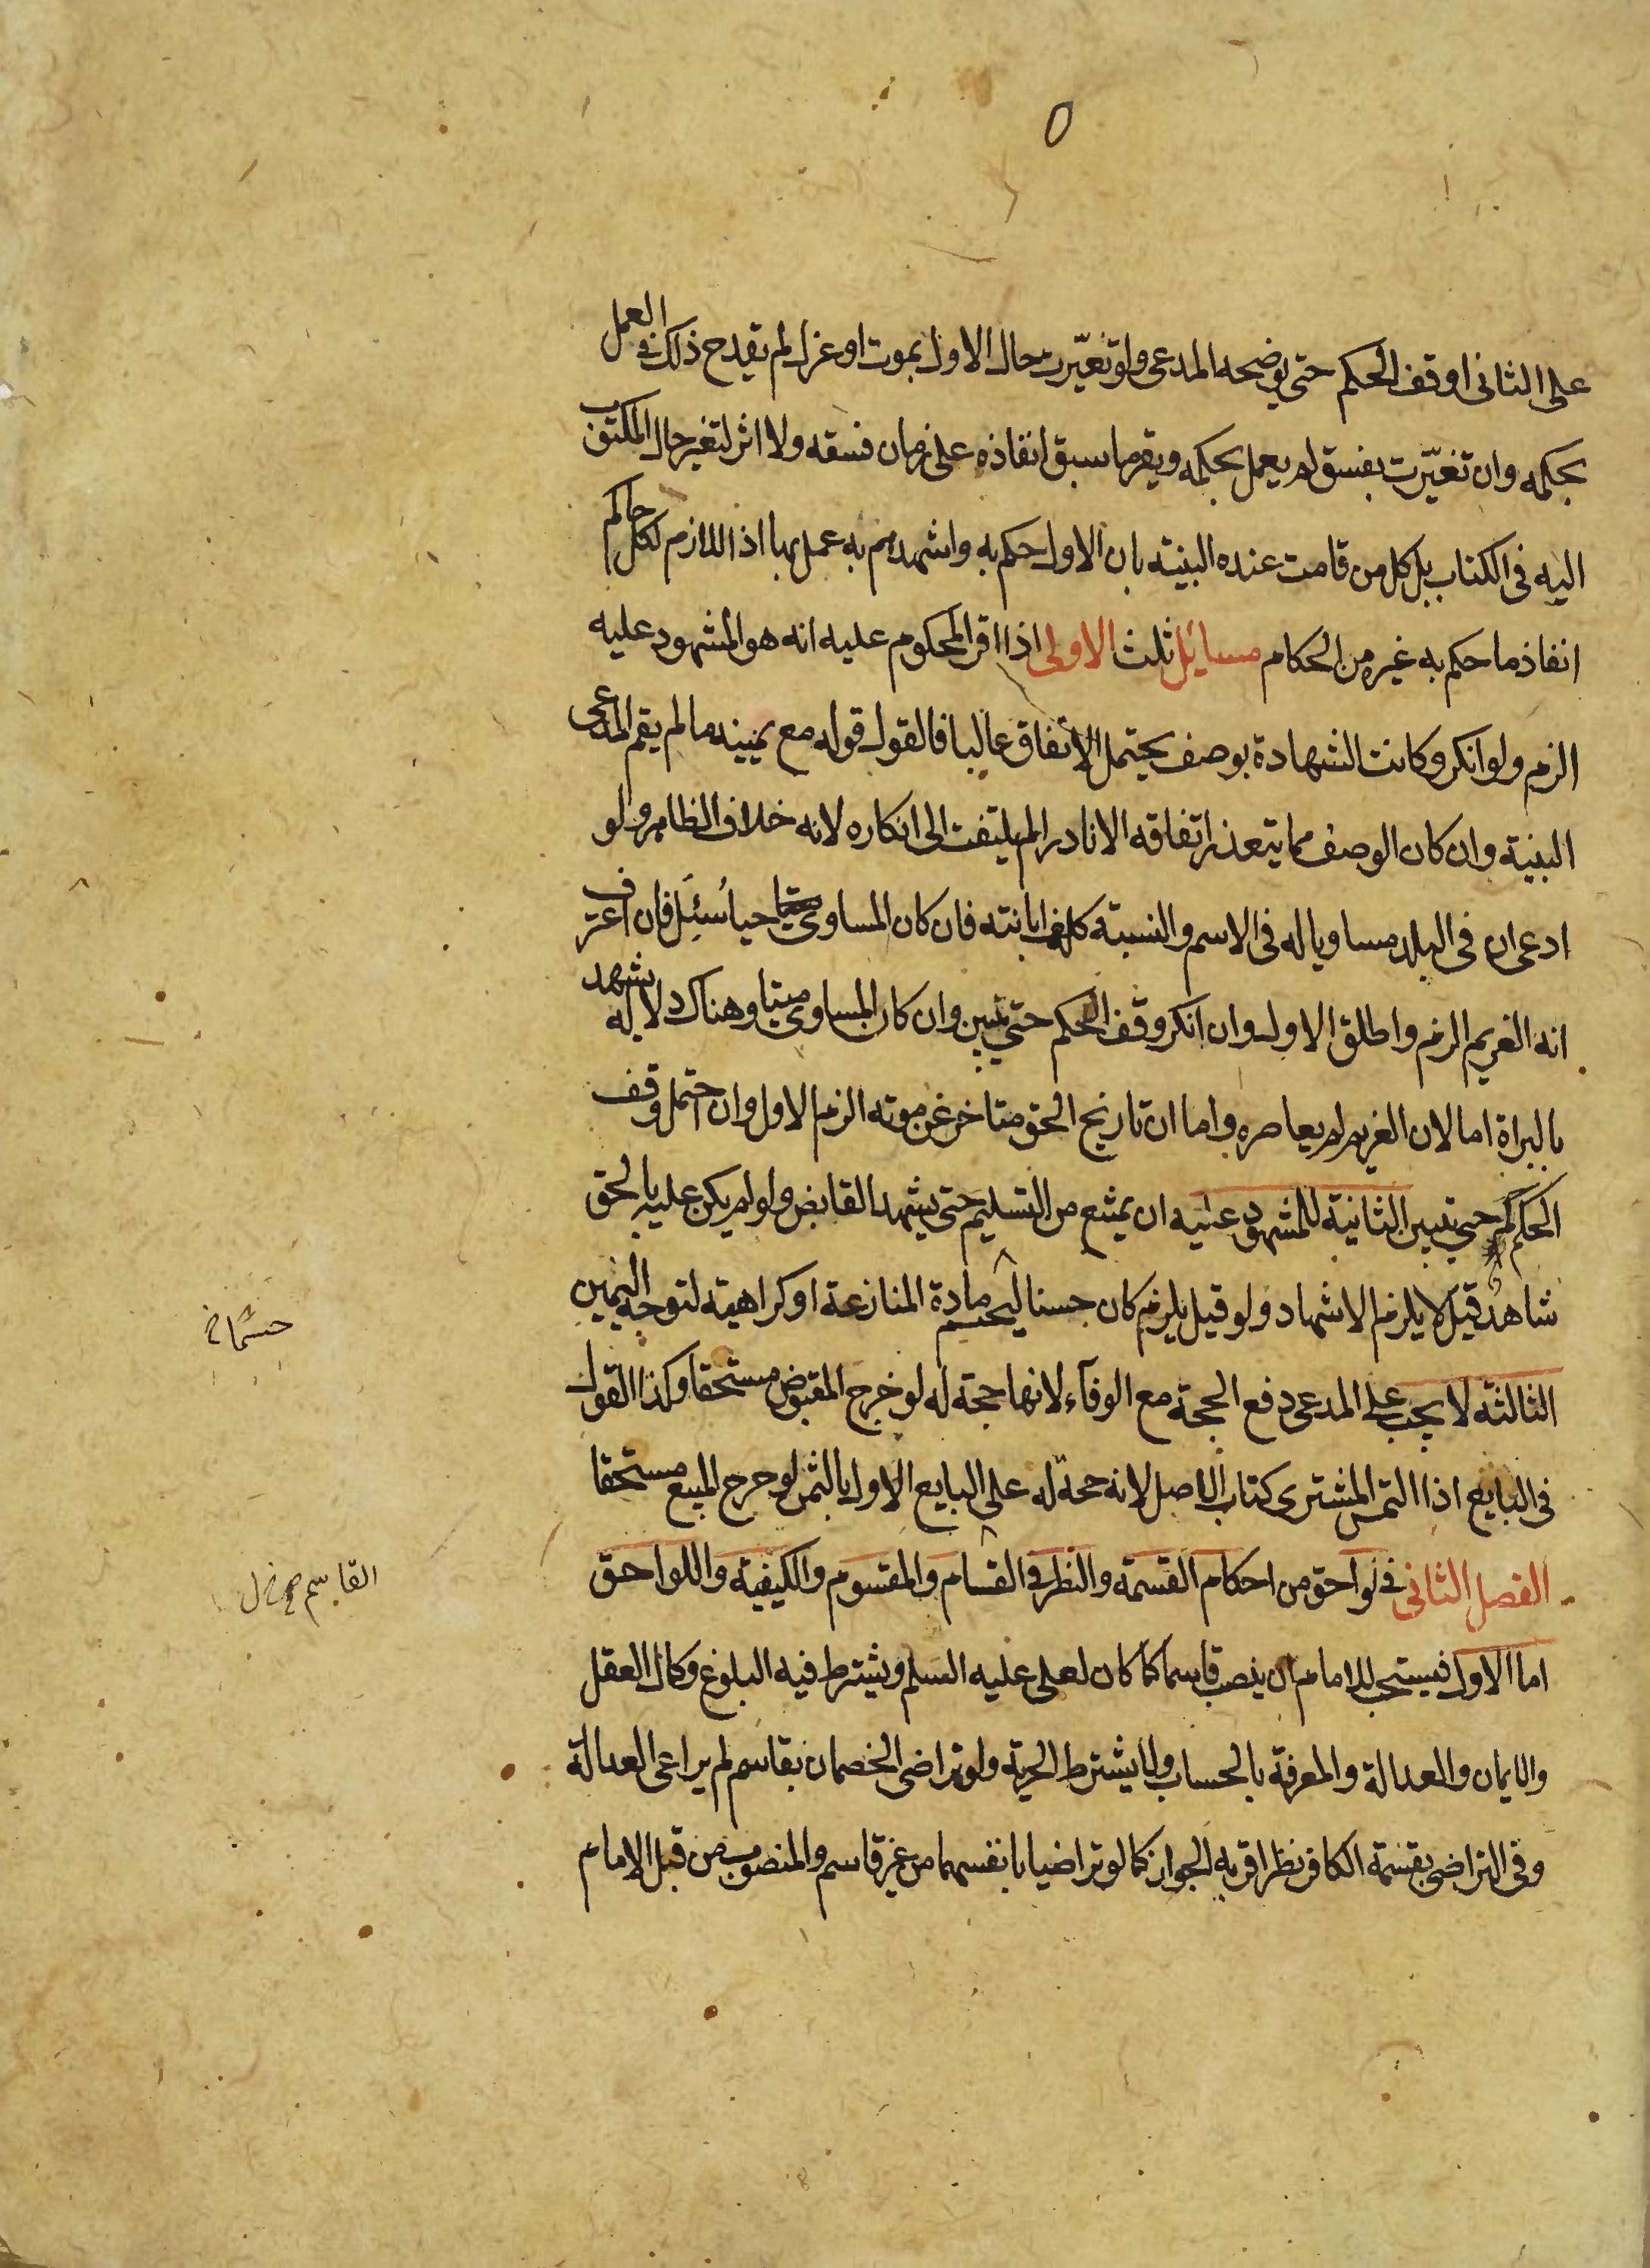 على الثانى اوقف الحكم حتى يوضحه المدعى ولو تغيّرت حال الاول بموت او عزل لم يقدح ذلك فى العمل
بحكمه وان تغيّرت بفسق لم يعمل بحكمه ويقر ما سبق انفاذه على زمان فسقه ولا اثر لتغير حال المكتوب
اليه فى الكتاب بل كل من قامت عنده البينة بان الاول حكم به واشهدهم به عمل بها اذ اللازم لكل حاكم
انفاذ ما حكم به غيره من الحكام مسائل ثلث الاولى اذا اقر المحكوم عليه انه هو المشهود عليه
الزم ولو انكر وكانت الشهادة بوصف يحتمل الاتفاق غالبا فالقول قوله مع يمينه ما لم يقم المدعى
البينة وان كان الوصف مما يتعذر اتفاقه الا نادرا لم يلتفت الى انكاره لانه خلاف الظاهر ولو
ادعى ان فى البلد مساويا له فى الاسم والنسبة كلف ابانته فان كان المساوى حيا سُئل فان اعترف
انه الغريم الزم واطلق الاول وان انكر وقف الحكم حتى تبين وان كان المساوى ميتا وهناك دلالة يشهد
بالبراة اما لان الغريم لم يعاصره واما ان تاريخ الحق متاخر عن موته الزم الاول وان احتمل وقف
الحكم حتى تبين الثانية للمشهود عليه ان يمتنع من التسليم حتى يشهد القابض ولو لم يكن عليه بالحق
شاهد قيل لا يلزم الاشهاد ولو قيل يلزم كان حسنا ليحسم مادة المنازعة او كراهية لتوجه اليمين
حسما
الثالثة لا يجب على المدعى دفع الحجة مع الوفآء لانها حجة له لو خرج المقبوض مستحقا وكذا القول
فى البايع اذا التمس المشترى كتاب الاصل لانه حجة له على البايع الاول بالثمن لو خرج المبيع مستحقا
الفصل الثانى فى لواحق من احكام القسمة والنظر فى القسام والمقسوم والكيفية واللواحق
القاسم
اما الاول فيستحب للامام ان ينصب قاسما كما كان لعلى عليه السلم ويشترط فيه البلوغ وكمال العقل
والايمان والعدالة والمعرفة بالحساب ولا يشترط الحرية ولو تراضى الخصمان بقاسم لم يراعى العدالة
وفى التراضى بقسمة الكافر نظر اقربه الجواز كما لو تراضيا بانفسهما من غير قاسم والمنصوب من قبل الامام